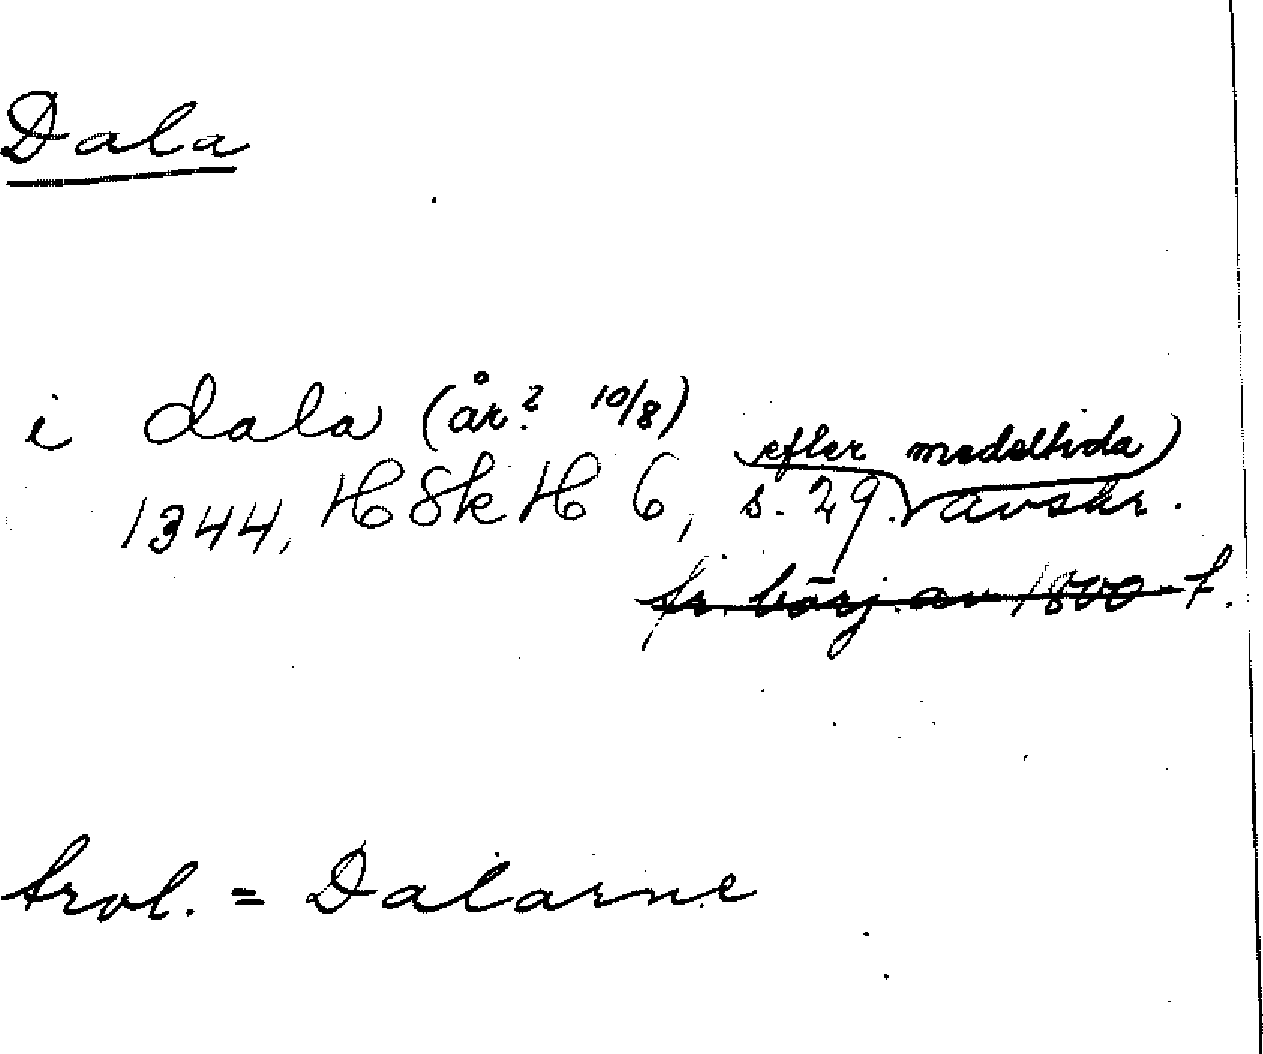 Dala
i dala (år? 10/8)
1344, HSkH 6, s. 29. efter medeltida avskr.
fr. börj. av 1800-t.
trol. = Dalarne